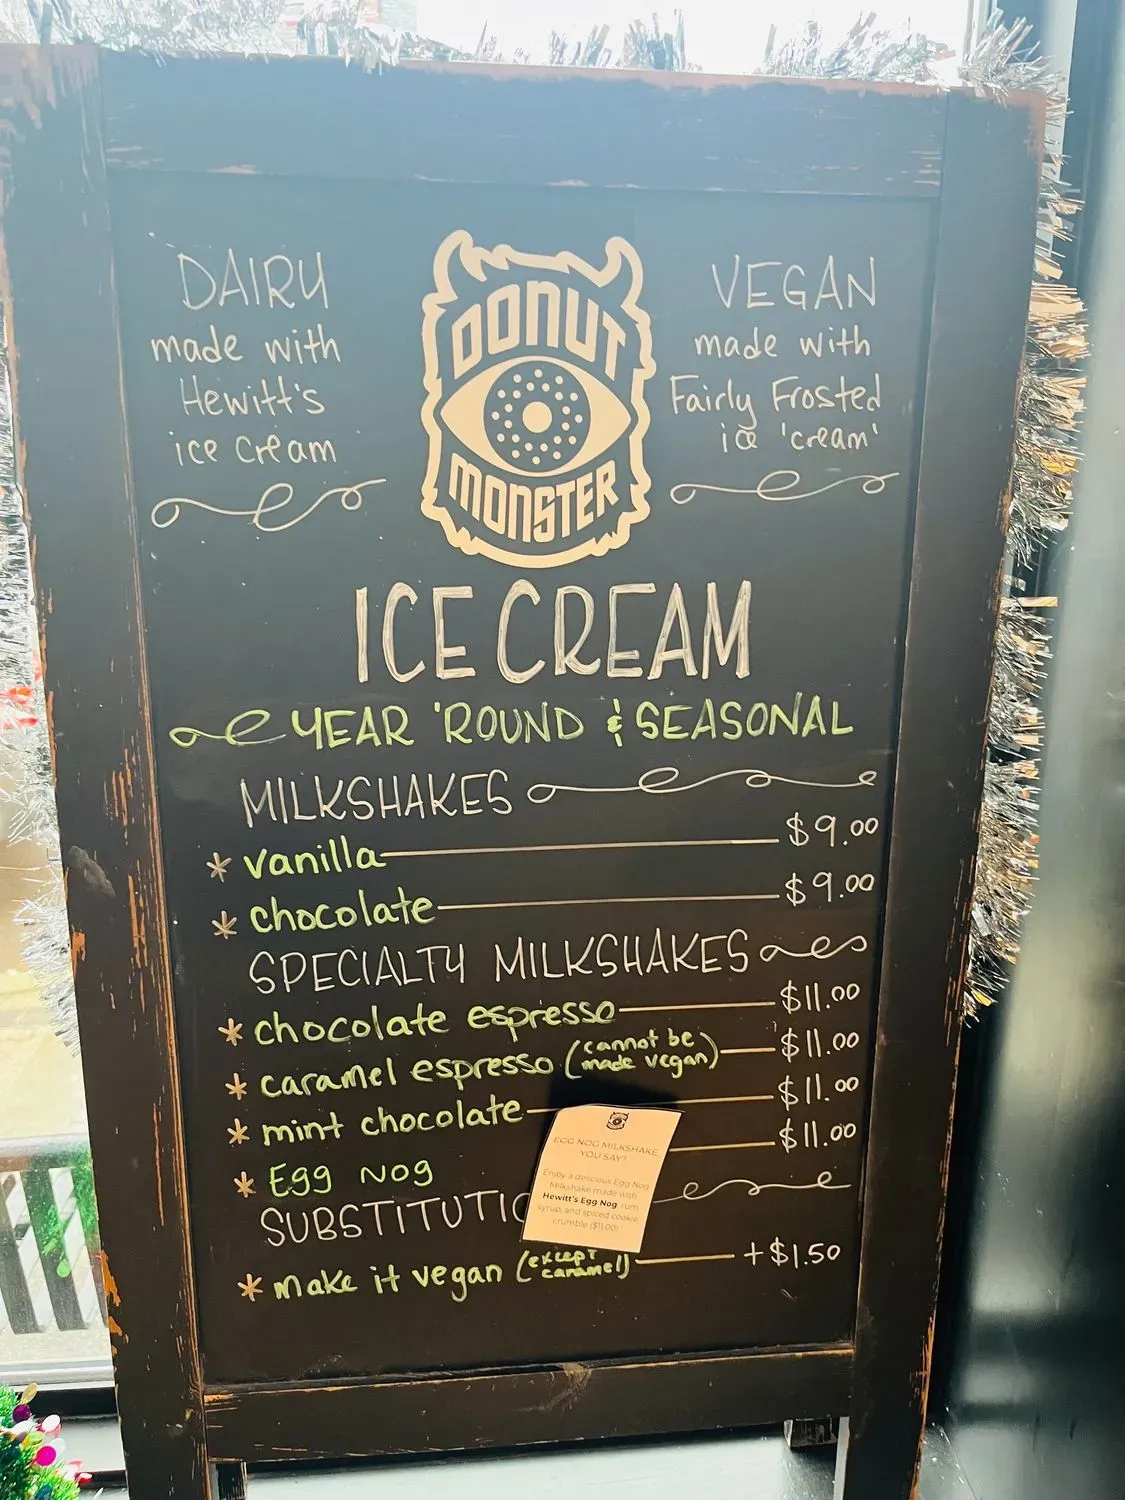 DAIRY
made with
Hewitt's
ice cream
DONUT
MONSTER
VEGAN
made with
Fairly Frosted
ice 'cream'
ICE CREAM
YEAR 'ROUND & SEASONAL
MILKSHAKES
* vanilla $9.00
* chocolate $9.00
SPECIALTY MILKSHAKES
* chocolate espresso $11.00
* caramel espresso (cannot be made vegan) $11.00
* mint chocolate $11.00
* Egg Nog $11.00
EGG NOG MILKSHAKE
YOU SAY?
Enjoy a delicious Egg Nog
Milkshake made with
Hewitt's Egg Nog, rum
syrup, and spiced cookie
crumble ($11.00)
SUBSTITUTIO
* make it vegan (except caramel) +$1.50